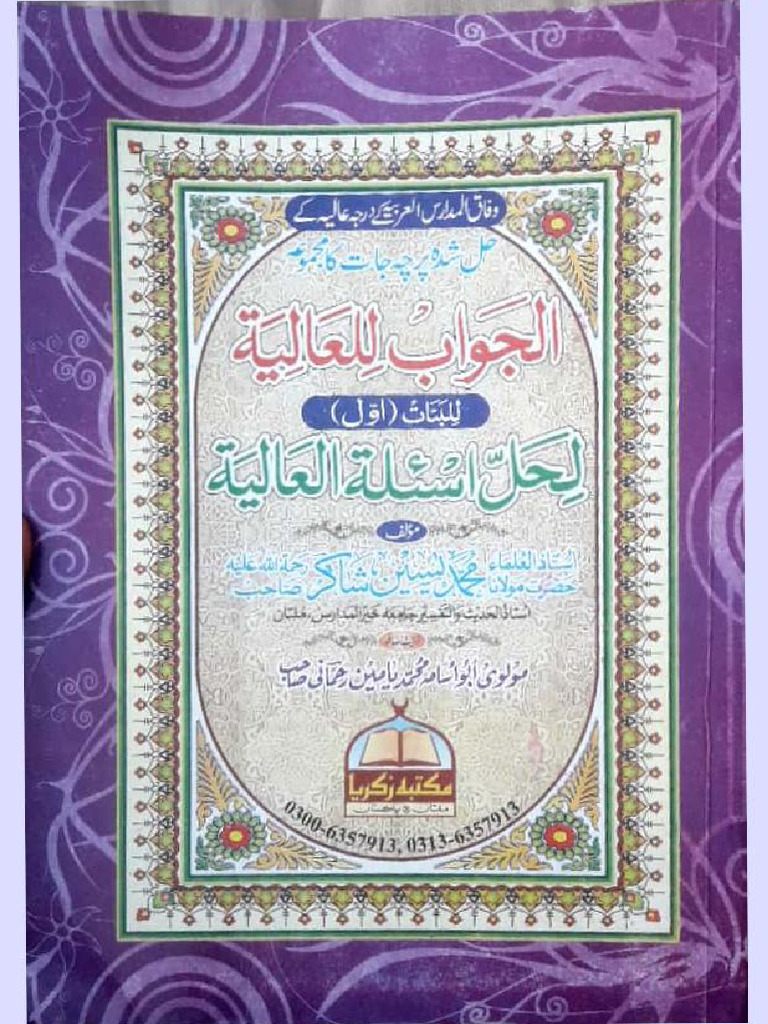 وفاق المدارس العربیہ کے درجہ عالیہ کے
حل شدہ پرچہ جات کا مجموعہ
الجَوَابْ لِلعَالِيَة
لِلبَنَاتْ (اوّل)
لِحَلِّ اسْئِلَة العَالِيَة
مؤلف
استاذ العُلماء حضرت مولانا محمد یٰسین شاکر صاحب رحمۃ اللہ علیہ
استاذ الحدیث والتفسیر جامعہ خیر المدارس، ملتان
مولوی ابو اسامہ محمد یامین رحمانی صاحب
مکتبہ زکریا
ملتان پاکستان
0300-6357913, 0313-6357913